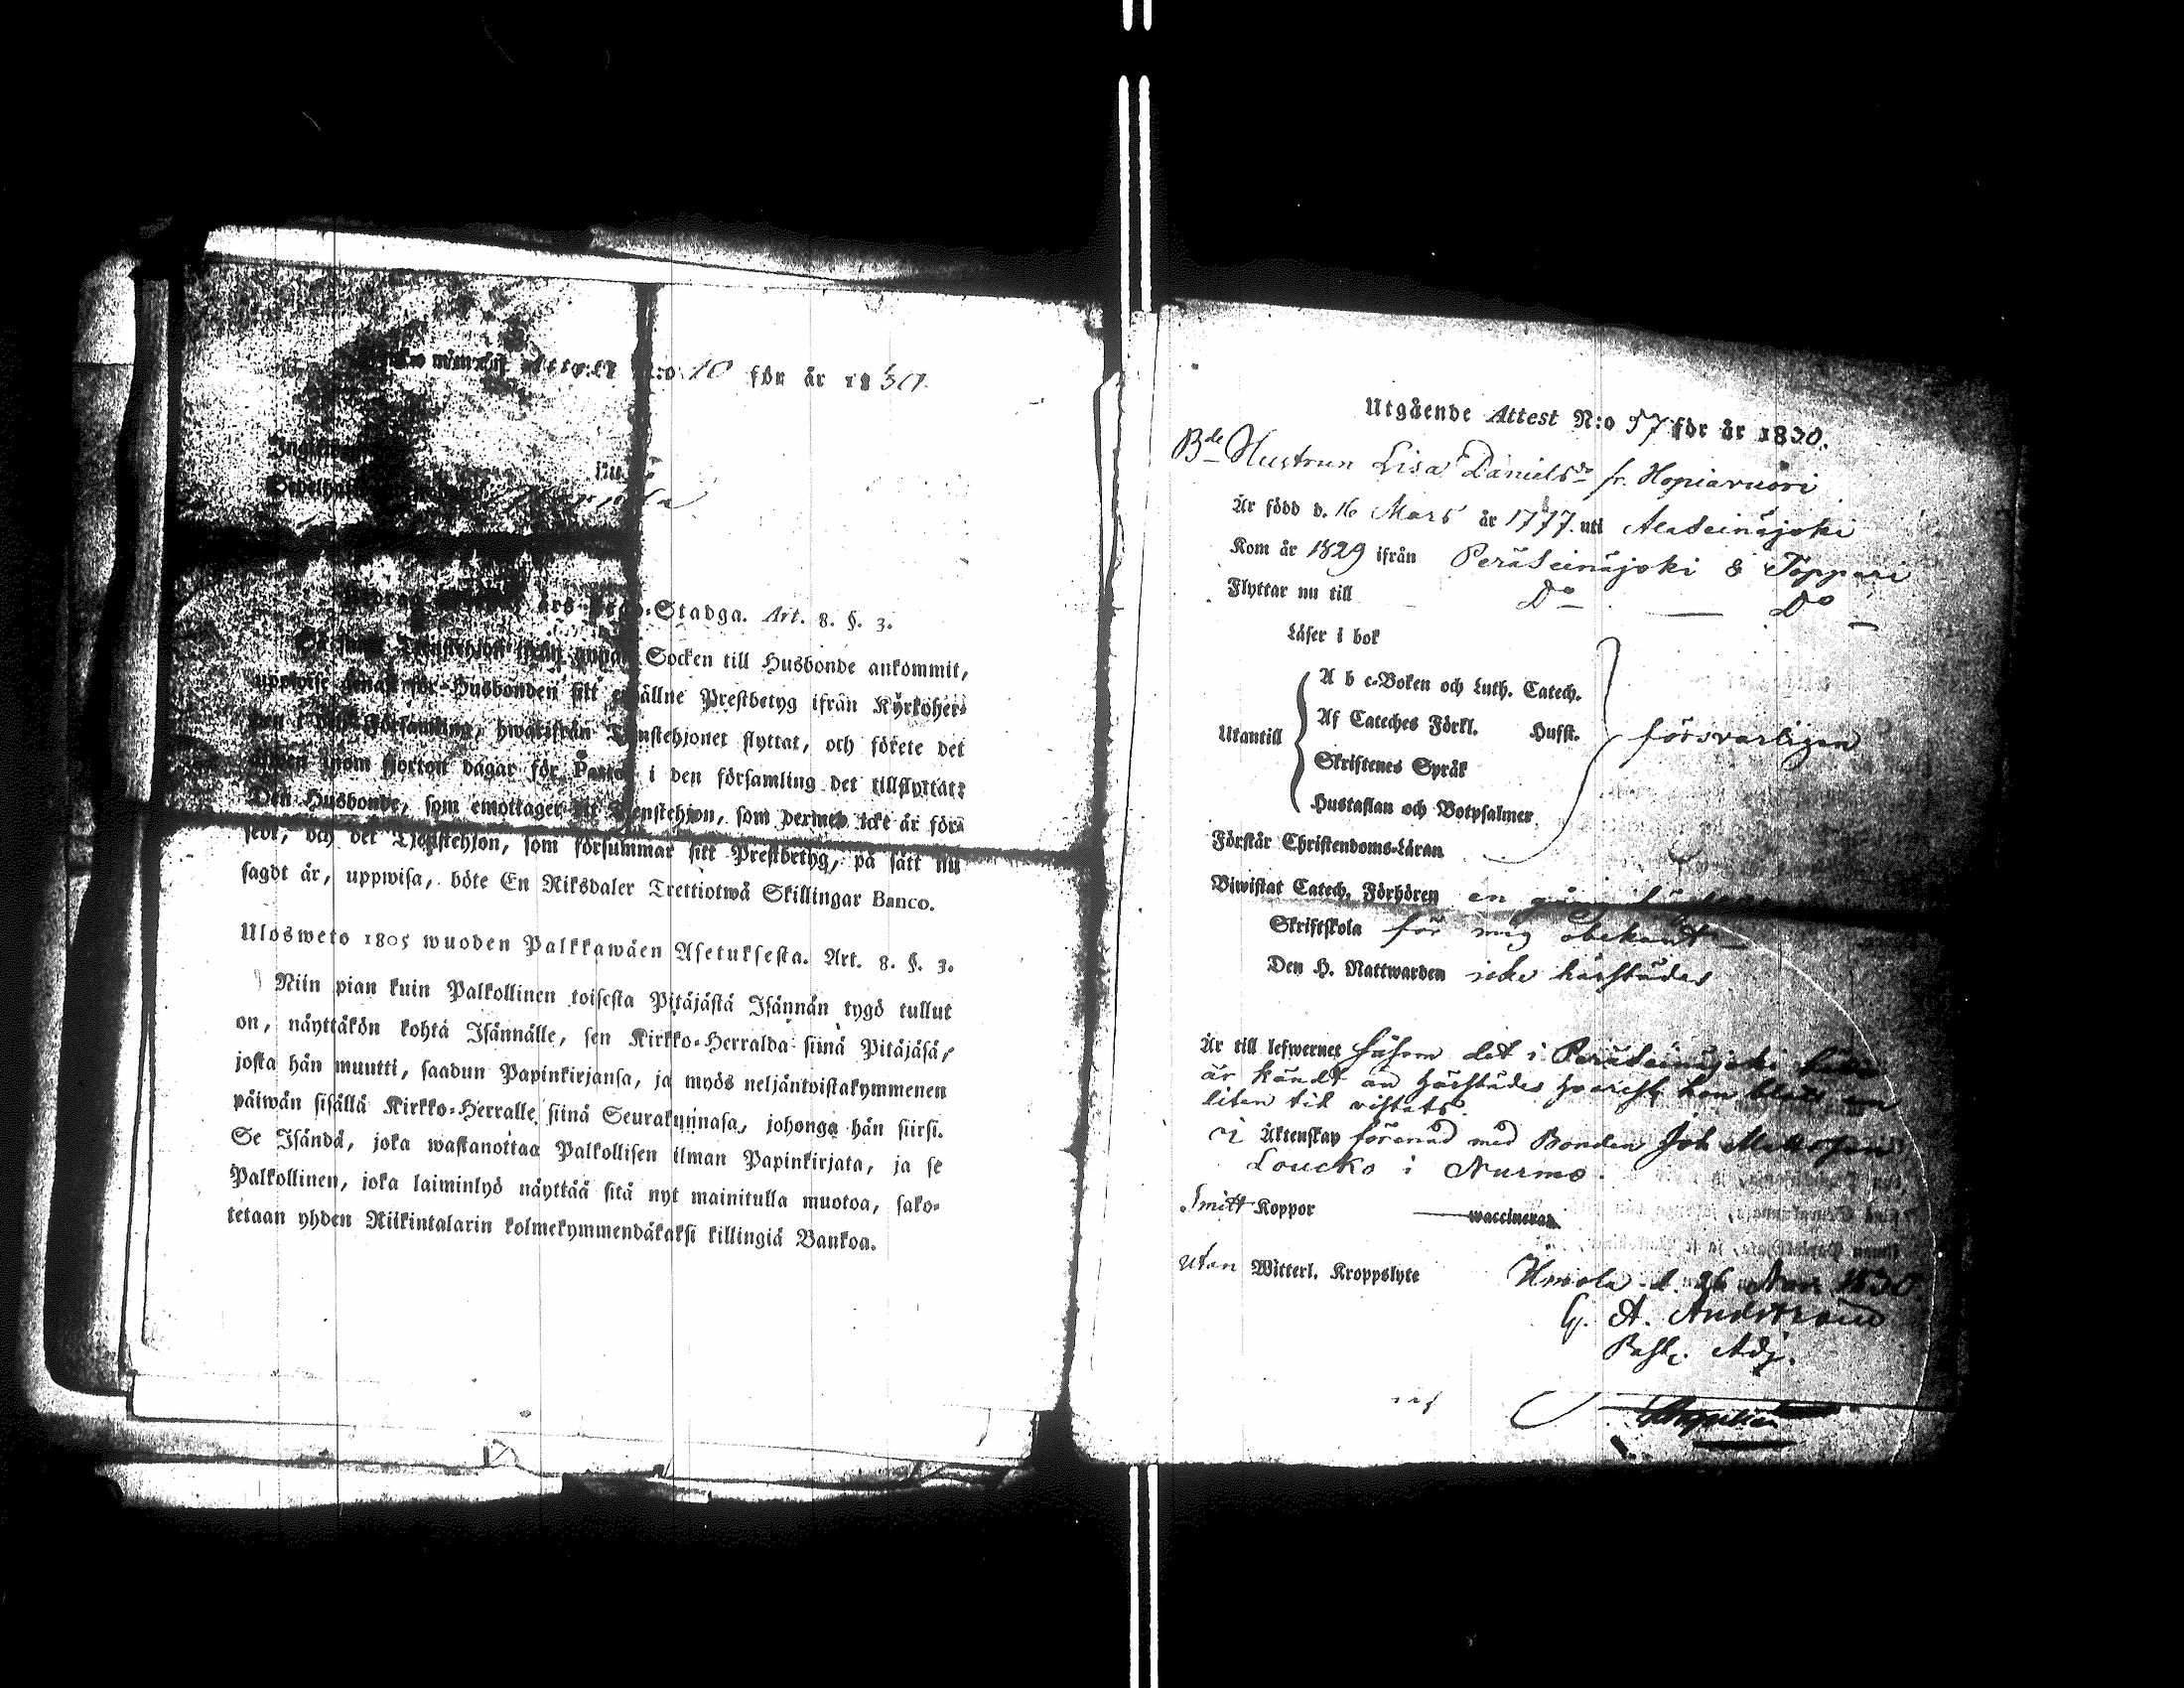 N:o 10 för år 1830.
års Lego-Stadga. Art. 8. §. 3.
Socken till Husbonde ankommit,
uppwise genast för Husbonden sitt erhållne Prestbetyg ifrån Kyrkoher-
församling, hwarifrån Tjenstehjonet flyttat, och förete det
inom fjorton dagar för Pastor i den församling det tillflyttat:
Den Husbonde, som emottager ett Tjenstehjon, som dermed icke är för-
sedt, och det Tjenstehjon, som försummar sitt Prestbetyg, på sätt nu
sagdt är, uppwisa, böte En Riksdaler Trettiotwå Skillingar Banco.
Ulosweto 1805 wuoden Palkkawäen Asetuksesta. Art. 8. §. 3.
Niin pian kuin Palkollinen toisesta Pitäjästä Isännän tygö tullut
on, näyttäkön kohta Isännälle, sen Kirkko-Herralda siinä Pitäjäsä,
josta hän muutti, saadun Papinkirjansa, ja myös neljäntoistakymmenen
päiwän sisällä Kirkko-Herralle siinä Seurakunnasa, johonga hän siirsi.
Se Isändä, joka wastanottaa Palkollisen ilman Papinkirjata, ja se
Palkollinen, joka laiminlyö näyttää sitä nyt mainitulla muotoa, sako-
tetaan yhden Riikintalarin kolmekymmendäkaksi killingiä Bankoa.
Utgående Attest N:o 57 för år 1830.
Bde Hustrun Lisa Danielsdr fr. Hopiavuori
Är född d. 16 Mars år 1777 uti Alaseinäjoki
Kom år 1829 ifrån Peräseinäjoki & Toppari
Flyttar nu till Do — Do —
Läser i bok
A b c-Boken och Luth. Catech.
Af Cateches Förkl. Hufst.
Utantill försvarligen
Skriftenes Språk
Hustaflan och Botpsalmer
Förstår Christendoms-Läran
Biwistat Catech. Förhören en gång
Skriftskola för mig obekant
Den H. Nattwarden icke härstädes
Är till lefwernet såsom det i Peräseinäjoki
är kändt än härstädes hvarest hon blott en
liten tid vistats.
i Äktenskap förenad med Bonden Joh Mattsson
Loucko i Nurmo.
Smitt Koppor waccinerad
utan Witterl. Kroppslyte
Ilmola d. 26 Nov 1830
G. A. Andstrand
Past. Adj.